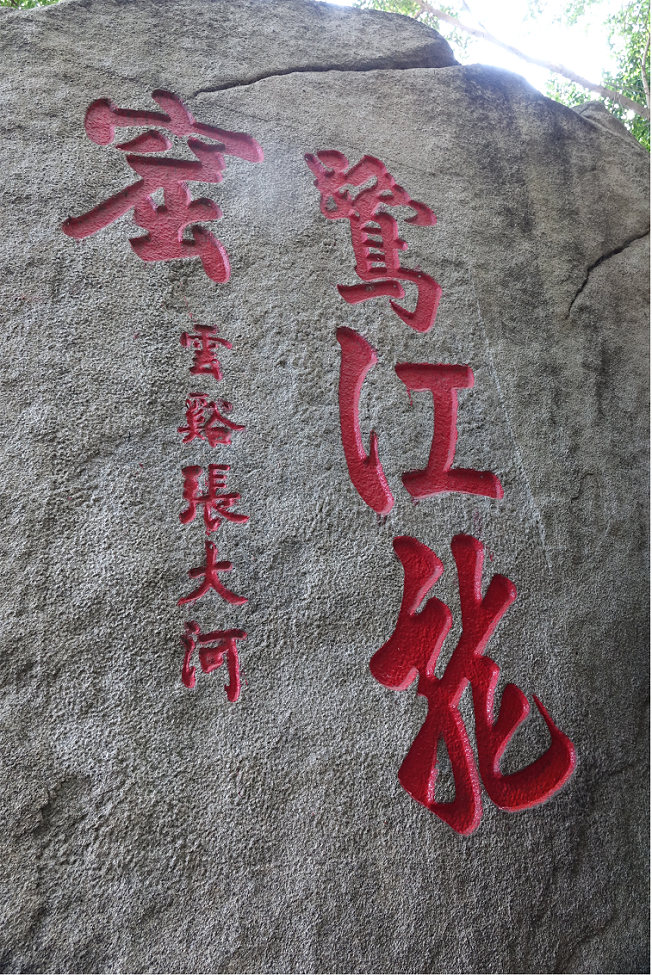 鷺江龍
窟
雲谿張大河